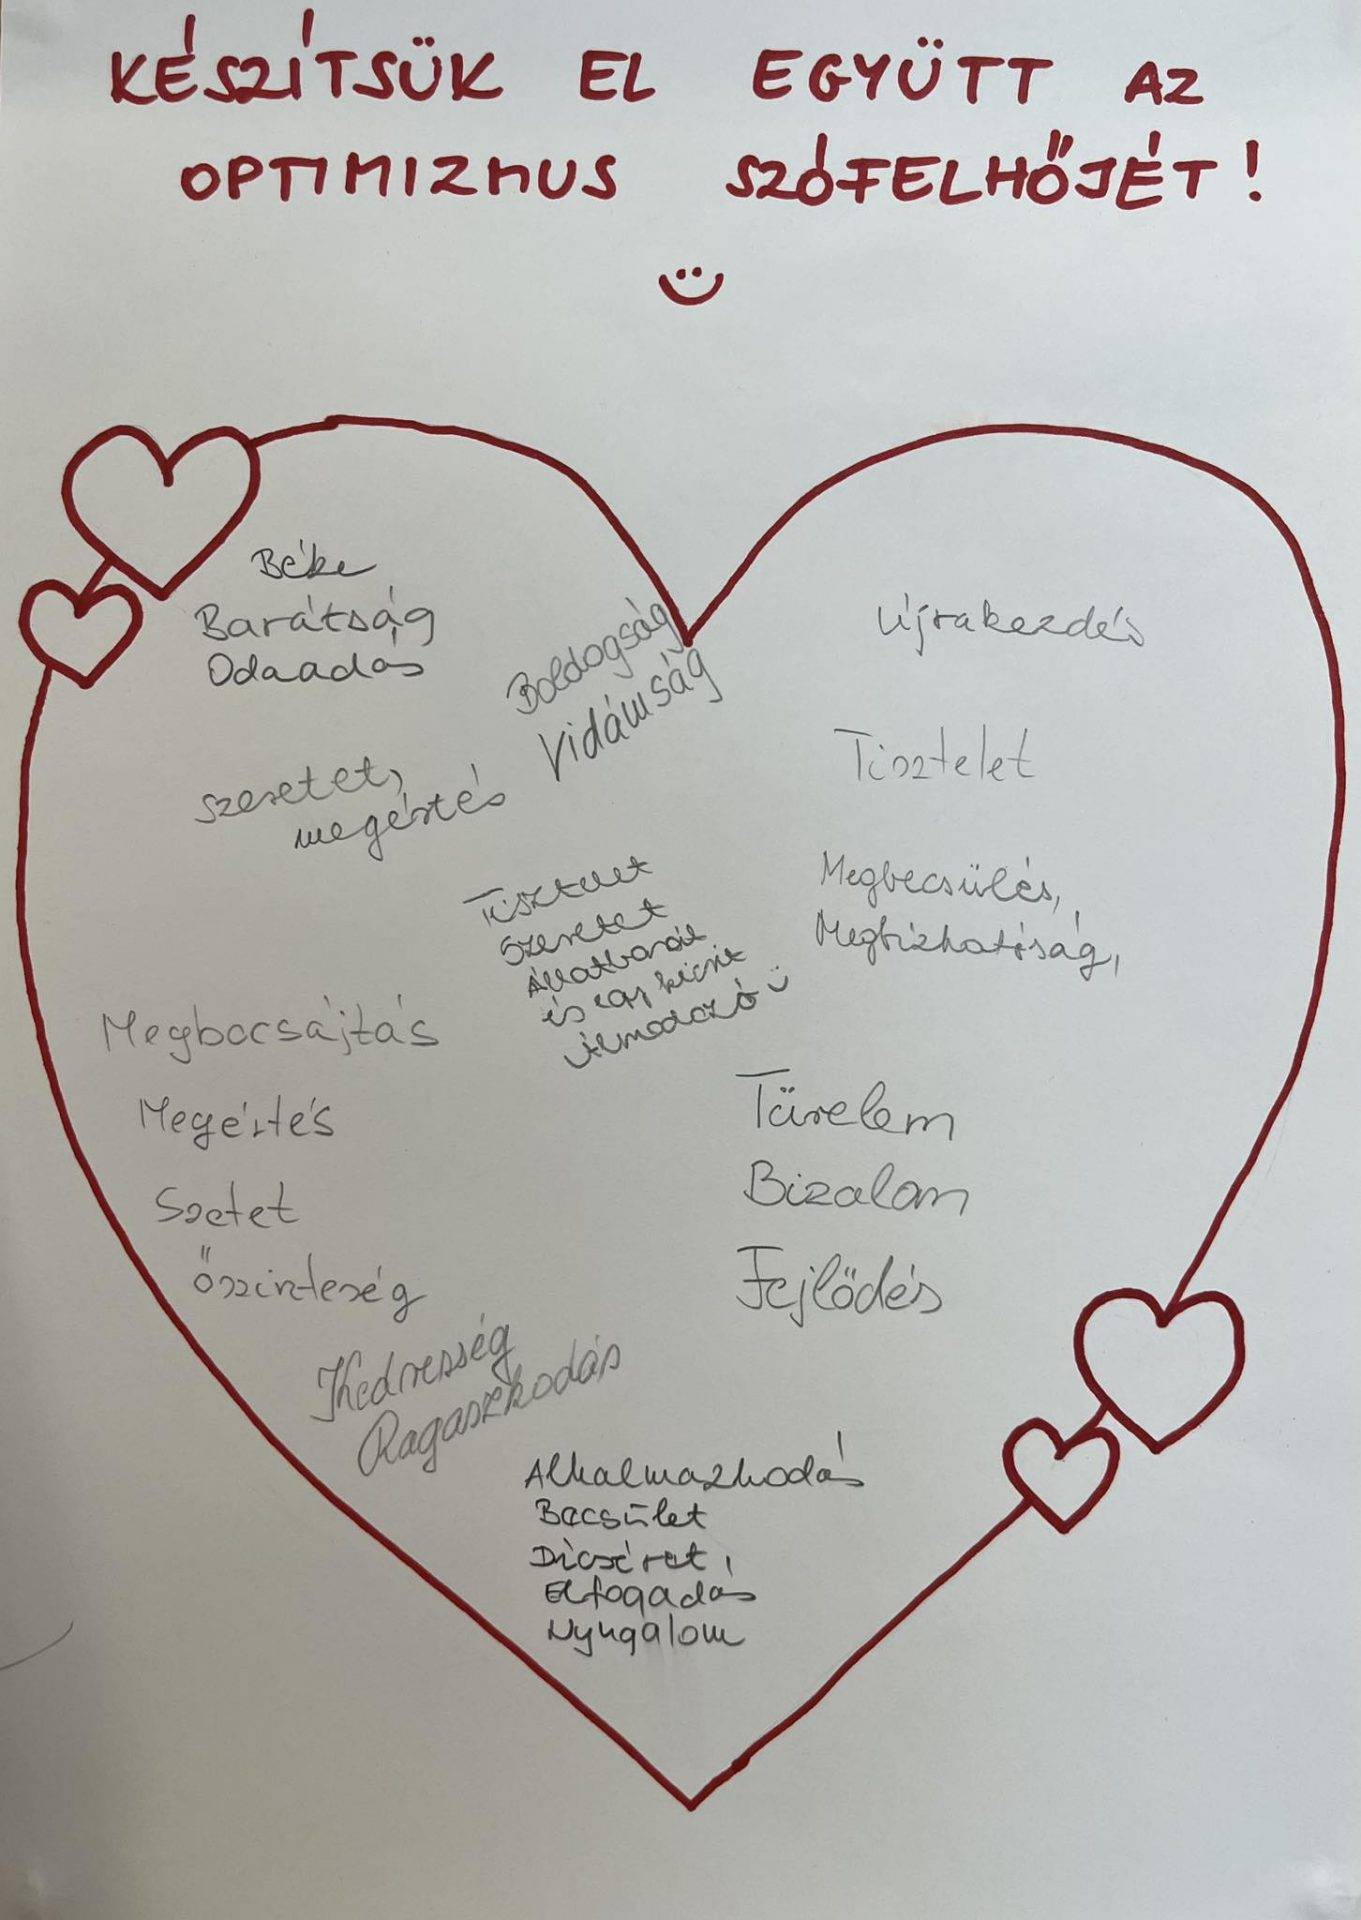 KÉSZÍTSÜK EL EGYÜTT AZ
OPTIMIZMUS SZÓFELHŐJÉT!
Béke
Barátság
Odaadás
Boldogság
Vidámság
Újrakezdés
szeretet,
megértés
Tisztelet
Tisztelet
Szeretet
Állatbarát
és egy kicsit
álmodozó
Megbecsülés,
Megbízhatóság,
Megbocsájtás
Megértés
Szetet
Őszinteség
Türelem
Bizalom
Fejlődés
Kedvesség
Ragaszkodás
Alkalmazkodás
Becsület
Dicséret,
Elfogadás
Nyugalom